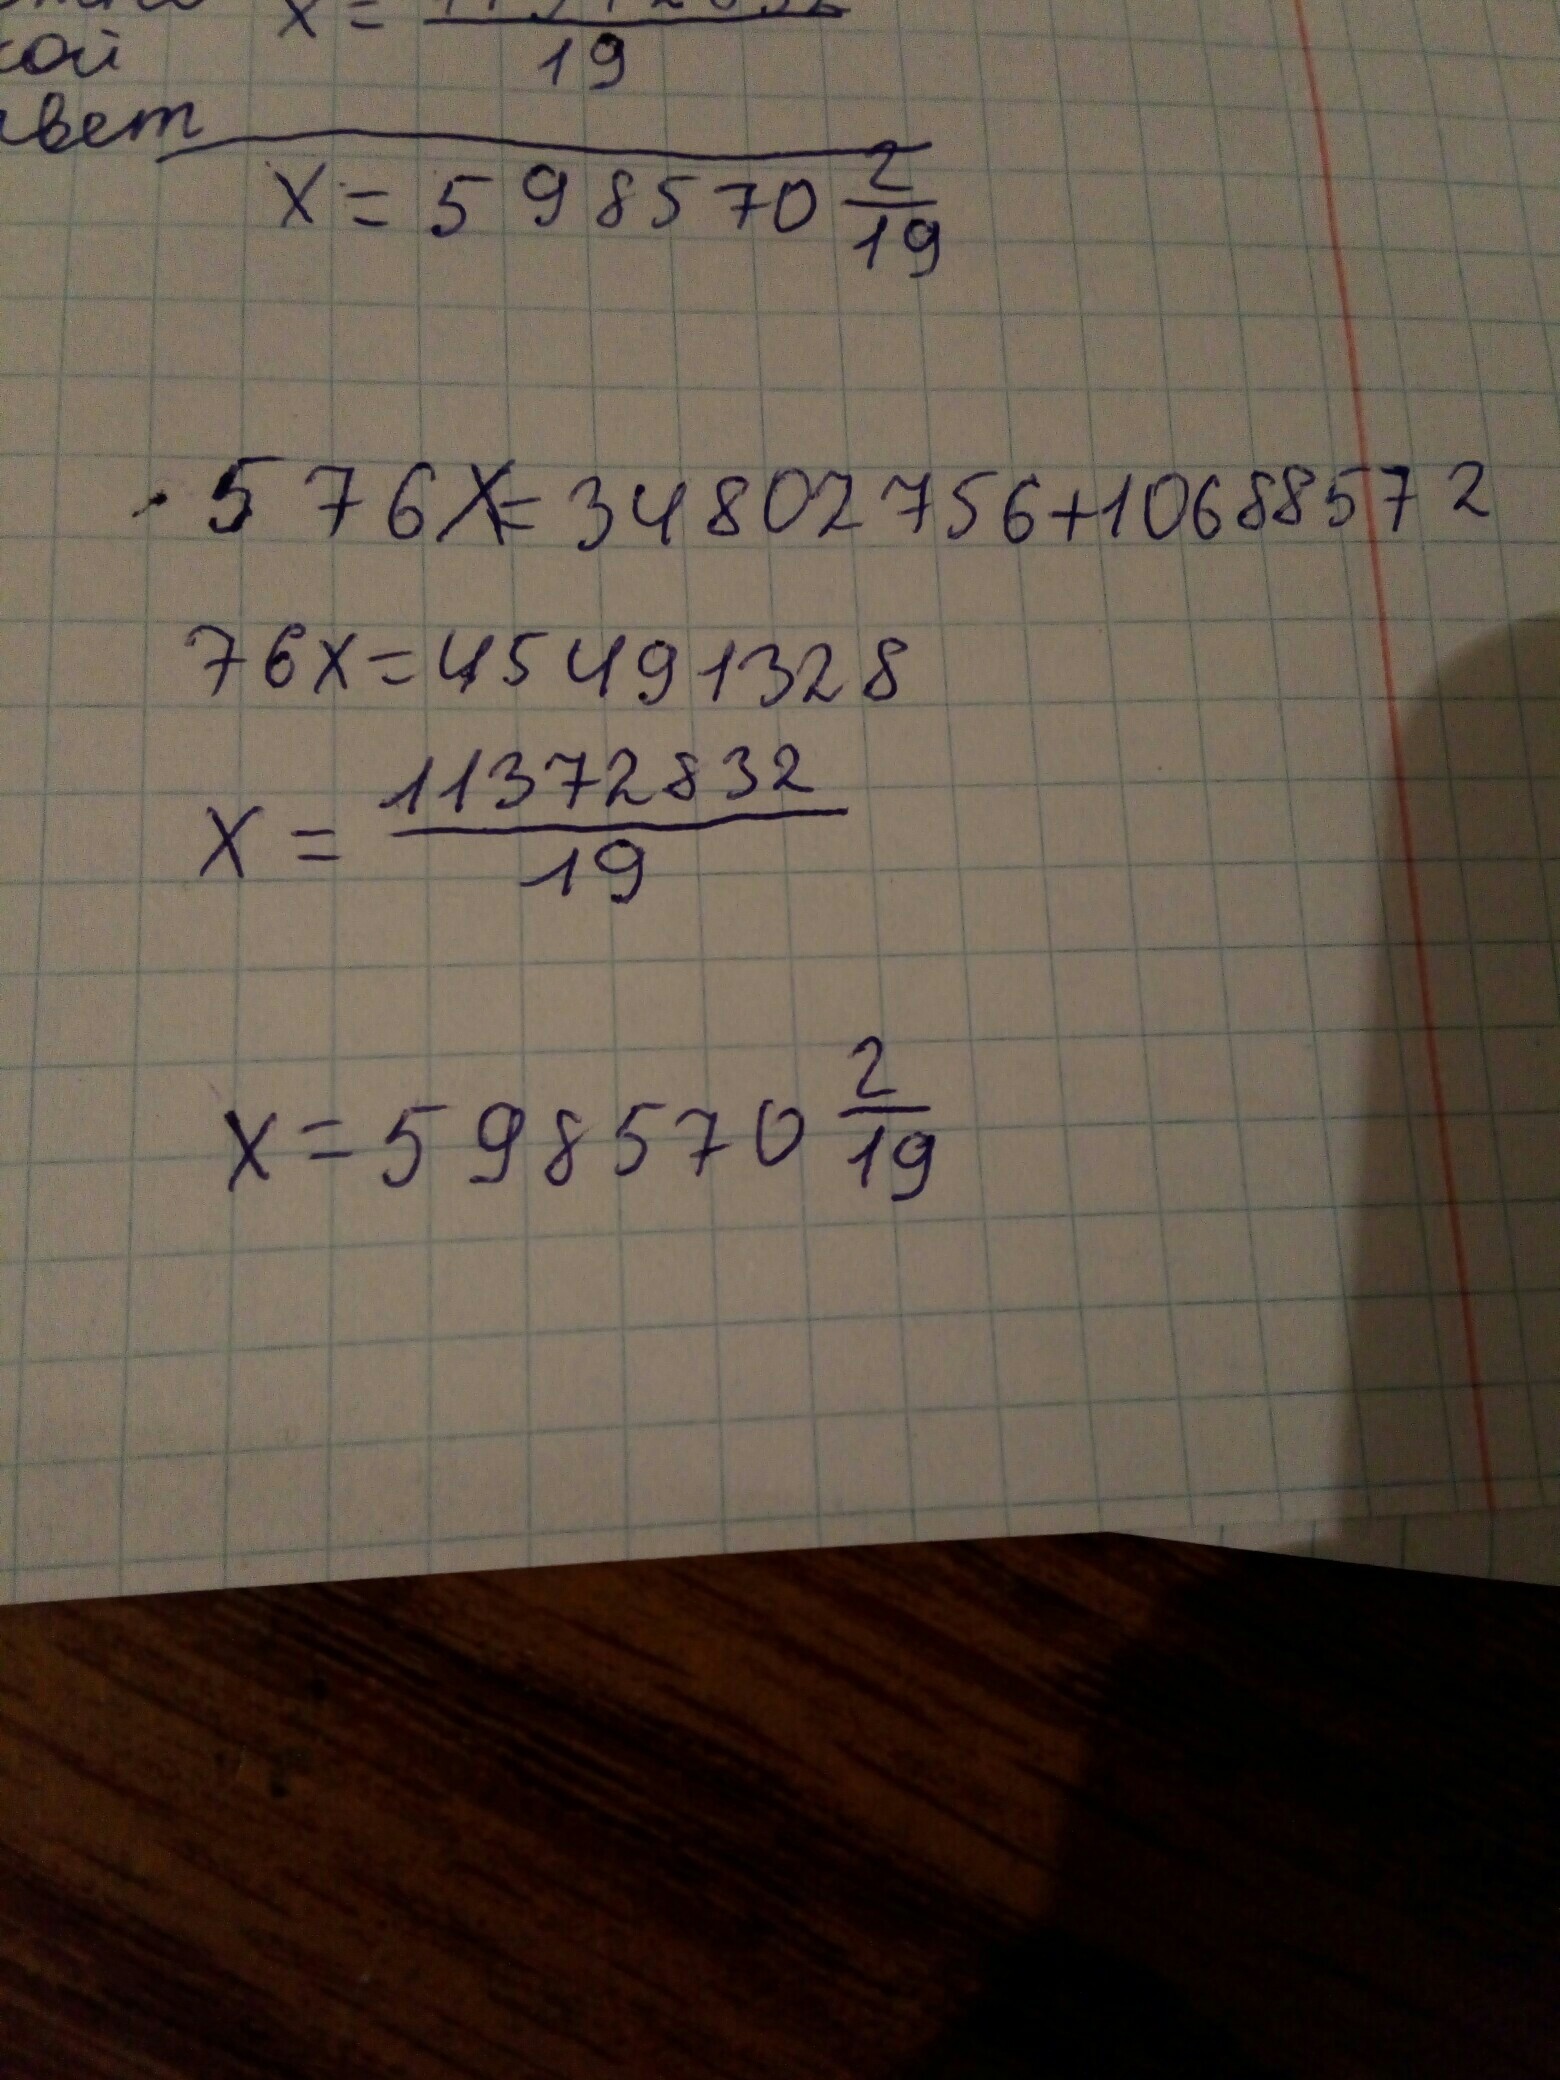 x =
кой 19
x = 598570 2/19
576x = 34802756+10688572
76x = 45491328
x = 11372832/19
x = 598570 2/19